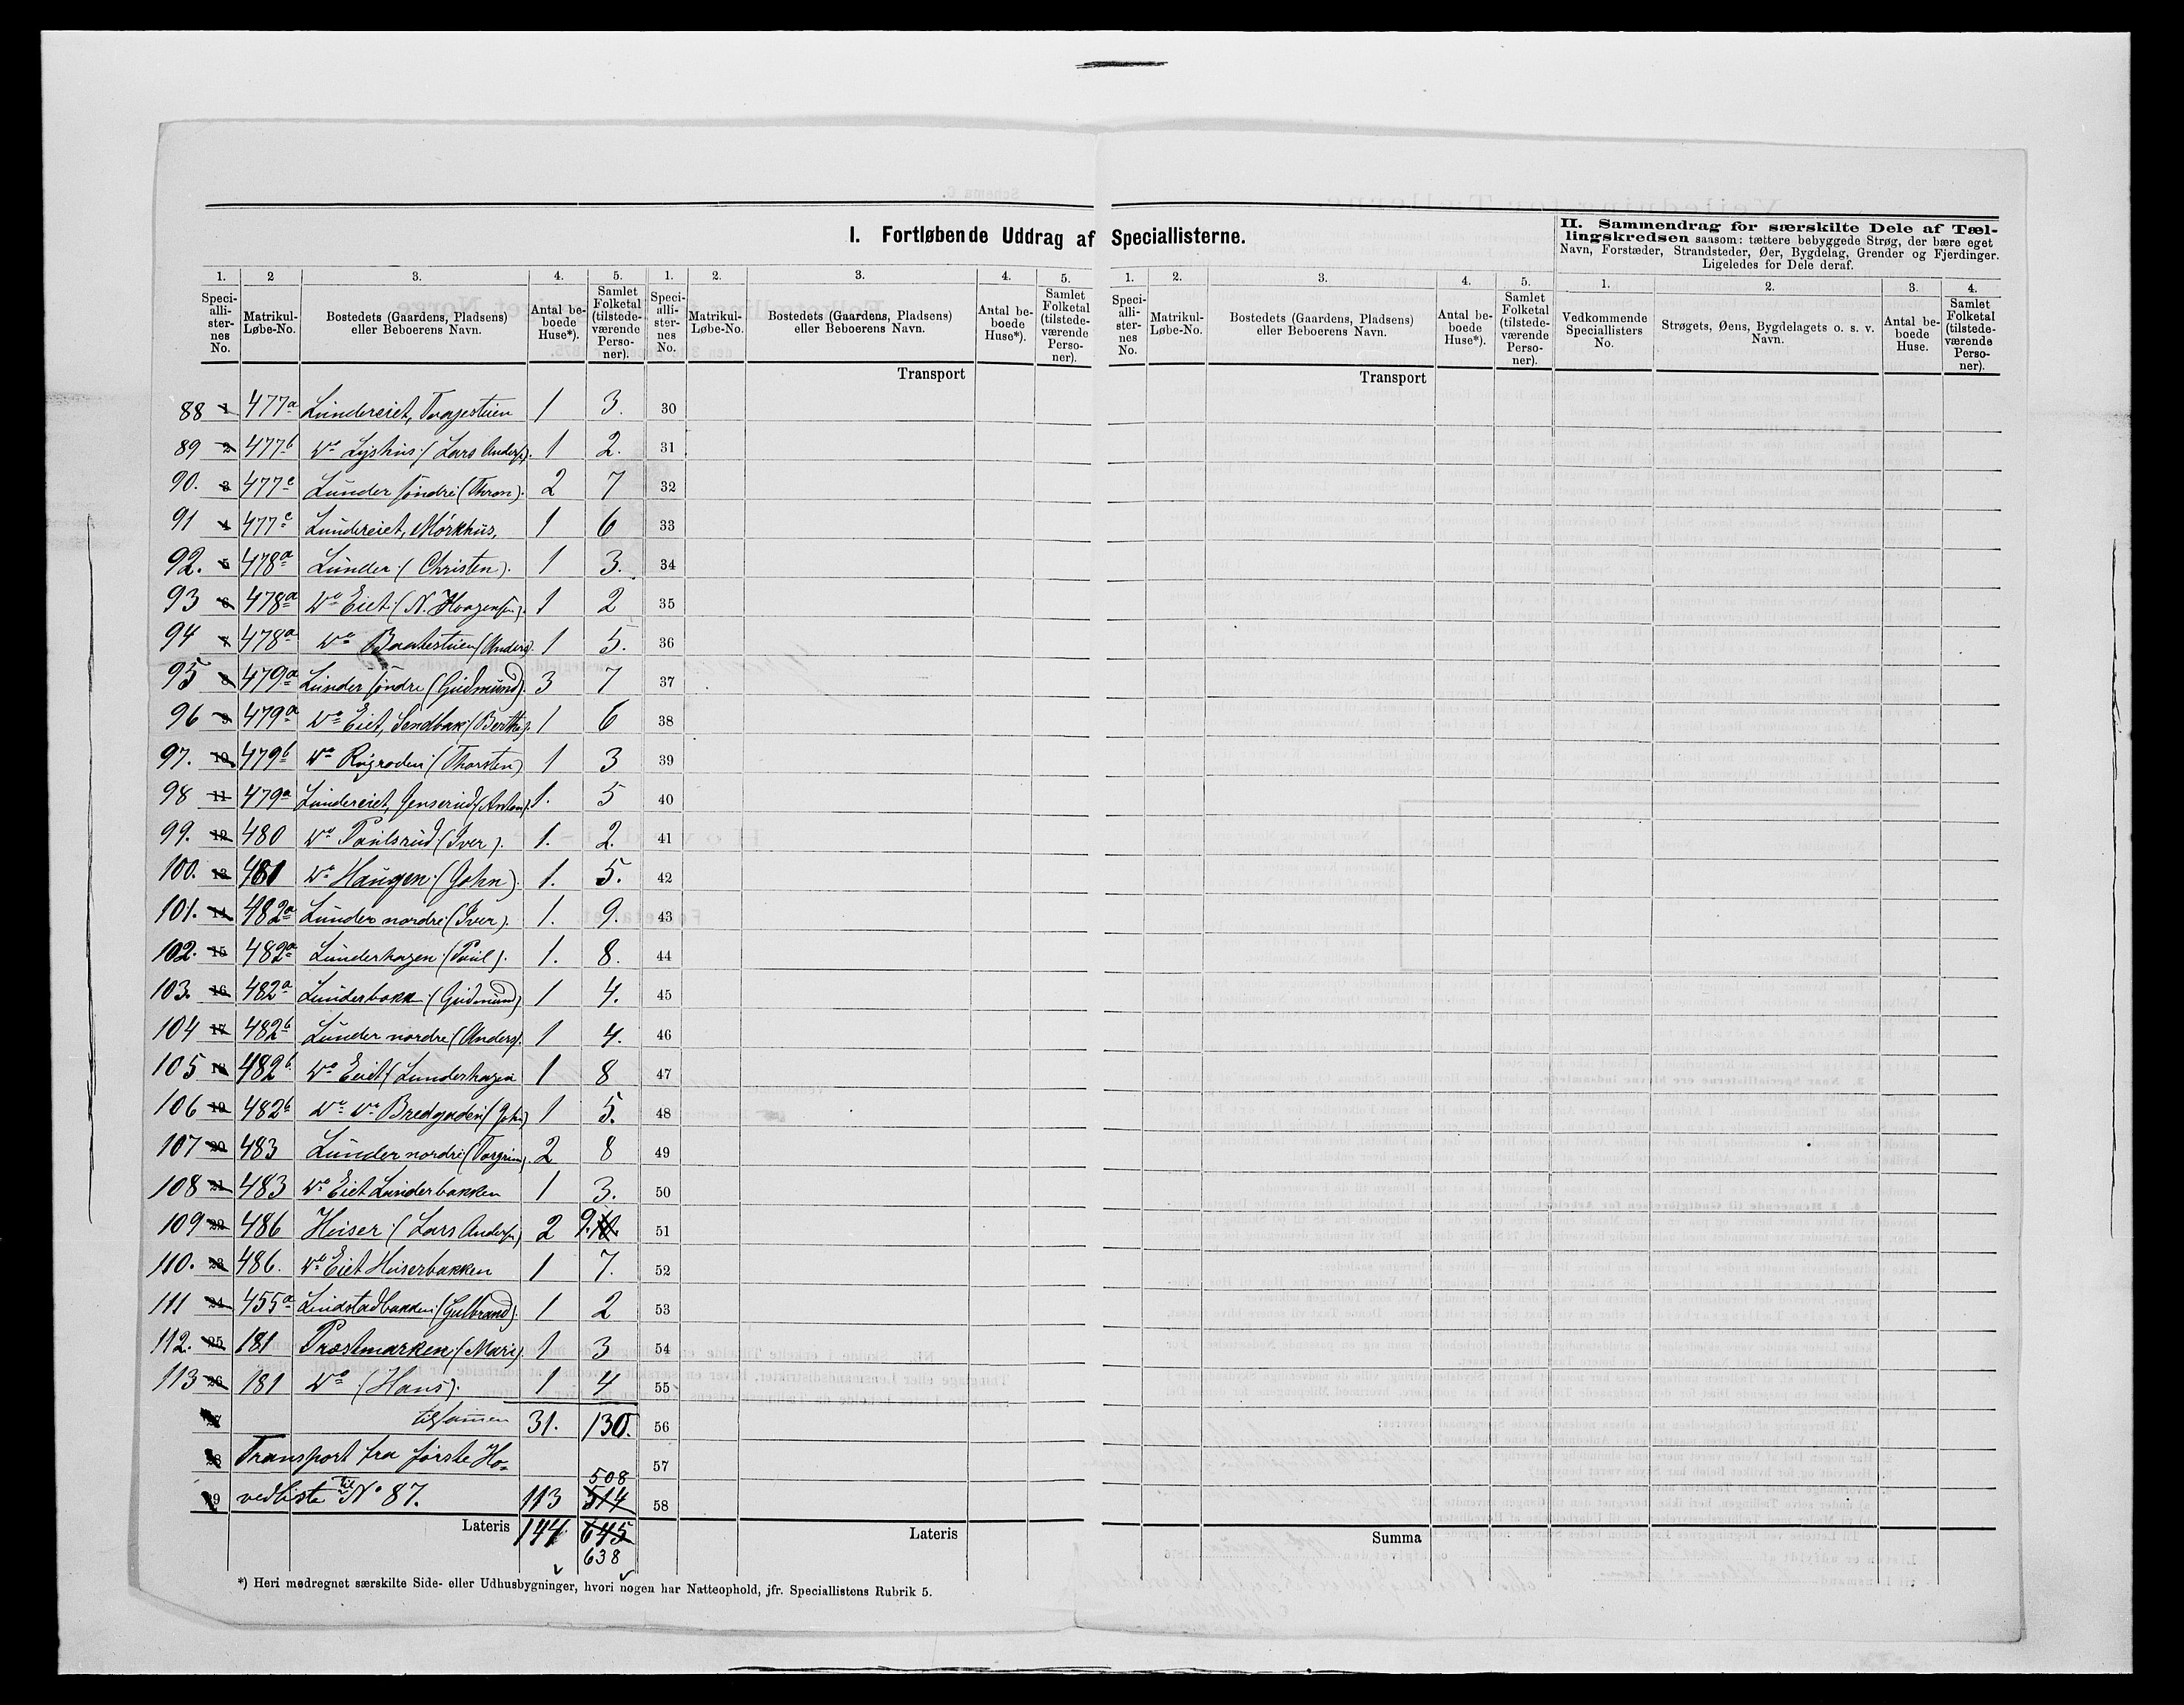 I. Fortløbende Uddrag af Speciallisterne.
II. Sammendrag for særskilte Dele af Tællingskredsen saasom: tættere bebyggede Strøg, der bære eget
Navn, Forstæder, Strandsteder, Øer, Bygdelag, Grender og Fjerdinger.
Ligeledes for Dele deraf.
1. 2 3. 4. 5. 1. 2. 3. 4. 5. 1. 2. 3. 4. 5. 1. 2. 3. 4.
Speciallisternes No. Matrikul-Løbe-No. Bostedets (Gaardens, Pladsens) eller Beboerens Navn. Antal beboede Huse*). Samlet Folketal (tilstedeværende Personer).
Speciallisternes No. Matrikul-Løbe-No. Bostedets (Gaardens, Pladsens) eller Beboerens Navn. Antal beboede Huse*). Samlet Folketal (tilstedeværende Personer).
Speciallisternes No. Matrikul-Løbe-No. Bostedets (Gaardens, Pladsens) eller Beboerens Navn. Antal beboede Huse*). Samlet Folketal (tilstedeværende Personer).
Vedkommende Speciallisters No. Strøgets, Øens, Bygdelagets o. s. v. Navn. Antal beboede Huse. Samlet Folketal (tilstedeværende Personer).
Transport Transport
88 1 477a Lundereiet, 1 3. 30
89 2 477b Do Lyshus (Lars Anders.). 1 2. 31
90. 3 477c Lunder söndre (Thron). 2 7 32
91 4 477c Lundereiet, Mörkhus, 1 6 33
92. 5 478a Lunder (Christen). 1 3. 34
93 6 478a Do Eiet (N. Haagens.). 1 2 35
94 7 478a Do (Anders). 1 5. 36
95 8 479a Lunder söndre (Gudmund). 3 7 37
96 9 479a Do Eiet, Sandbak (Berthe). 1 6 38
97. 10 479b Do (Thorsten) 1 3 39
98 11 479a Lundereiet, Jenserud (Anton). 1. 5 40
99. 12 480 Do Paulsrud (Iver). 1. 2. 41
100. 13 481 Do Haugen (John). 1. 5. 42
101. 14 482a Lunder nordre (Iver). 1. 9. 43
102. 15 482a Lunderhagen (Paul). 1. 8. 44
103. 16 482a Lunderbakk (Gudmund) 1 4. 45
104 17 482b Lunder nordre (Anders). 1 4. 46
105 18 482b Do Eiet (Lunderhagen 1 8 47
106 19 482b Do Do Bredgaden (John) 1 5. 48
107 20 483 Lunder nordre (Torgrim). 2 8 49
108 21 483 Do Eiet Lunderbakken 1 3. 50
109 22 486 Huser (Lars Anders.) 2 9. 10. 51
110. 23 486. Do Eiet Huserbakken 1 7. 52
111 24 455a Lindstadbakken (Gulbrand). 1 2 53
112. 25 181 Præstmarken (Mari) 1 3 54
113 26 181 Do (Hans). 1 4 55
27 tilsammen 31. 130. 56
28 Transport fra förste Ho- 57
508
29 vedliste til No 87. 113 514 58
Lateris 144 645 Lateris Summa
638
*) Heri medregnet særskilte Side- eller Udhusbygninger, hvori nogen har Natteophold, jfr. Speciallistens Rubrik 5.